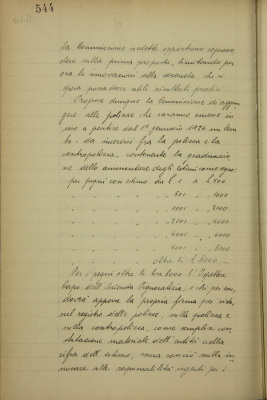 544
la Commissione credette opportuno soprasse-
dere sulla prima proposta, limitando per
ora le innovazioni alla seconda, che
possa dare utili risultati pratici.
Propose dunque la Commissione di aggiun-
gere alle polizze che saranno emesse in
uso a partire dal 1° gennaio 1926 un lem-
bo - da inserirsi fra la polizza e la
contropolizza - contenente la graduazio-
ne dello ammontare degli estimi come segue:
per pegni con estimo da L. 1 a L. 500
" " " " " 501 " 1000
" " " " " 1001 " 2000
" " " " " 2001 " 4000
" " " " " 4001 " 6000
" " " " " 6001 " 8000
" " " " " oltre le L. 8000 -
Per i pegni oltre le Lire 8000 l'Ispettore
Capo dell'Azienda Pignoratizia, o chi per esso,
dovrà apporre la propria firma per visto,
nel registro delle polizze, nella polizza e
nella contropolizza, come semplice con-
statazione materiale dell'entità della
cifra dell'estimo, senza con ciò nulla in-
novare alle responsabilità vigenti per i